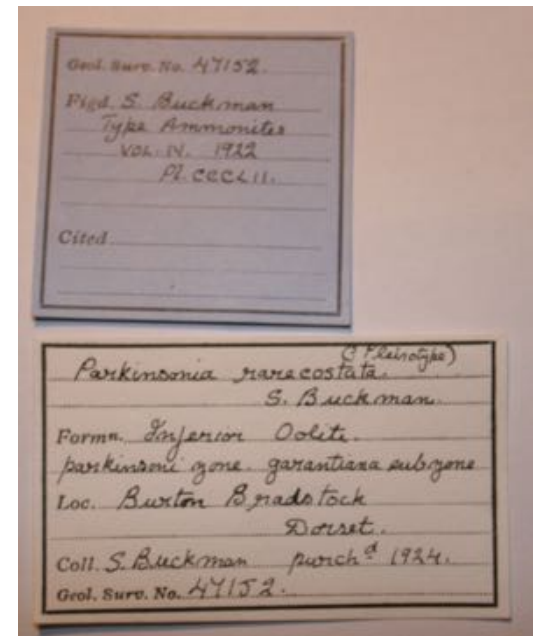 Geol. Surv. No. 47152.
Figd. S. Buckman
Type Ammonites
VOL. IV. 1922
Pl. CCCLII.
Cited
(? Pleisotype)
Parkinsonia rarecostata.
S. Buckman.
Formn. Inferior Oolite.
parkinsoni zone. garantiana subzone
Loc. Burton Bradstock
Dorset.
Coll. S. Buckman purchd 1924.
Geol. Surv. No. 47152.